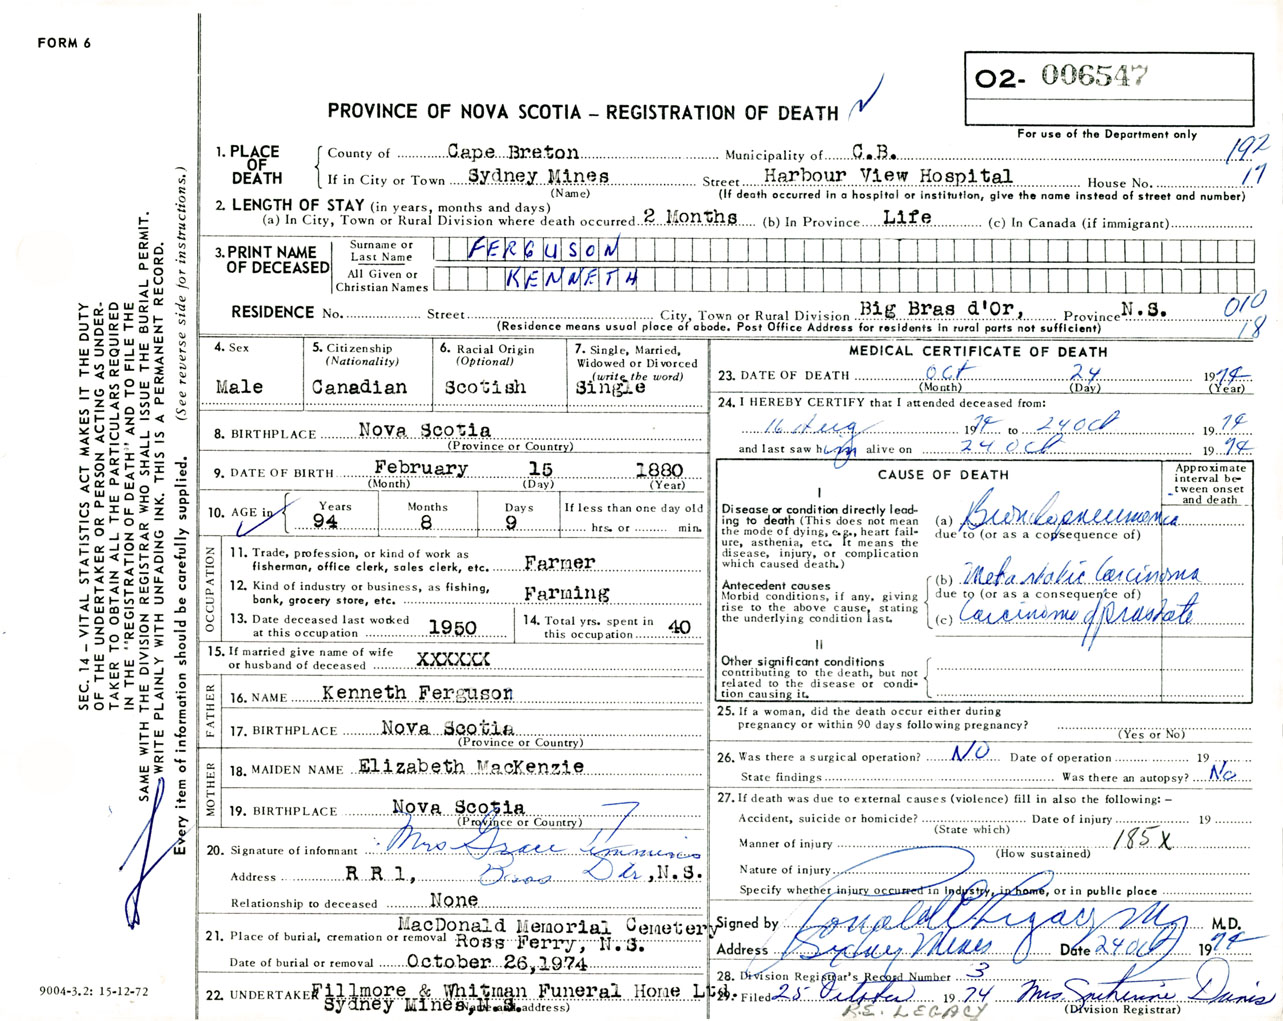 FORM 6
O2- 006547
PROVINCE OF NOVA SCOTIA – REGISTRATION OF DEATH
For use of the Department only
192
17
1. PLACE OF DEATH
County of Cape Breton Municipality of C.B.
If in City or Town Sydney Mines Street Harbour View Hospital House No.
(Name) (If death occurred in a hospital or institution, give the name instead of street and number)
2. LENGTH OF STAY (in years, months and days)
(a) In City, Town or Rural Division where death occurred 2 Months (b) In Province Life (c) In Canada (if immigrant)
3. PRINT NAME OF DECEASED
Surname or Last Name FERGUSON
All Given or Christian Names KENNETH
RESIDENCE No. Street City, Town or Rural Division Big Bras d'Or, Province N.S.
(Residence means usual place of abode. Post Office Address for residents in rural parts not sufficient)
010
18
4. Sex
Male
5. Citizenship
(Nationality)
Canadian
6. Racial Origin
(Optional)
Scotish
7. Single, Married,
Widowed or Divorced
(write the word)
Single
8. BIRTHPLACE Nova Scotia
(Province or Country)
9. DATE OF BIRTH February 15 1880
(Month) (Day) (Year)
10. AGE in
Years Months Days If less than one day old
94 8 9 hrs. or min.
OCCUPATION
11. Trade, profession, or kind of work as
fisherman, office clerk, sales clerk, etc. Farmer
12. Kind of industry or business, as fishing,
bank, grocery store, etc. Farming
13. Date deceased last worked
at this occupation 1950
14. Total yrs. spent in
this occupation 40
15. If married give name of wife
or husband of deceased XXXXXX
FATHER
16. NAME Kenneth Ferguson
17. BIRTHPLACE Nova Scotia
(Province or Country)
MOTHER
18. MAIDEN NAME Elizabeth MacKenzie
19. BIRTHPLACE Nova Scotia
(Province or Country)
20. Signature of informant Mrs Grace Timmins
Address R R 1, Bras Dor, N.S.
Relationship to deceased None
MacDonald Memorial Cemetery
21. Place of burial, cremation or removal Ross Ferry, N.S.
Date of burial or removal October 26,1974
22. UNDERTAKER Fillmore & Whitman Funeral Home Ltd.
Sydney Mines, N.S.
(Name and address)
MEDICAL CERTIFICATE OF DEATH
23. DATE OF DEATH Oct 24 1974
(Month) (Day) (Year)
24. I HEREBY CERTIFY that I attended deceased from:
16 Aug 1974 to 24 Oct 1974
and last saw him alive on 24 Oct 1974
CAUSE OF DEATH
Approximate
interval be-
tween onset
and death
I
Disease or condition directly lead-
ing to death (This does not mean
the mode of dying, e.g., heart fail-
ure, asthenia, etc. It means the
disease, injury, or complication
which caused death.)
(a) Bronchopneumonia
due to (or as a consequence of)
Antecedent causes
Morbid conditions, if any, giving
rise to the above cause, stating
the underlying condition last.
(b) Metastatic Carcinoma
due to (or as a consequence of)
(c) Carcinoma of prostate
II
Other significant conditions
contributing to the death, but not
related to the disease or condi-
tion causing it.
25. If a woman, did the death occur either during
pregnancy or within 90 days following pregnancy?
(Yes or No)
26. Was there a surgical operation? NO Date of operation 19
State findings Was there an autopsy? No
27. If death was due to external causes (violence) fill in also the following: –
Accident, suicide or homicide? Date of injury 19
(State which)
Manner of injury 185X
(How sustained)
Nature of injury
Specify whether injury occurred in industry, in home, or in public place
Signed by M.D.
Address Sydney Mines Date 24 Oct 1974
28. Division Registrar's Record Number 3
29. Filed 25 October 1974 Mrs Catherine Davis
(Division Registrar)
R.E. LEGACY
SEC. 14 – VITAL STATISTICS ACT MAKES IT THE DUTY
OF THE UNDERTAKER OR PERSON ACTING AS UNDER-
TAKER TO OBTAIN ALL THE PARTICULARS REQUIRED
IN THE "REGISTRATION OF DEATH" AND TO FILE THE
SAME WITH THE DIVISION REGISTRAR WHO SHALL ISSUE THE BURIAL PERMIT.
WRITE PLAINLY WITH UNFADING INK. THIS IS A PERMANENT RECORD.
Every item of information should be carefully supplied. (See reverse side for instructions.)
9004-3.2: 15-12-72